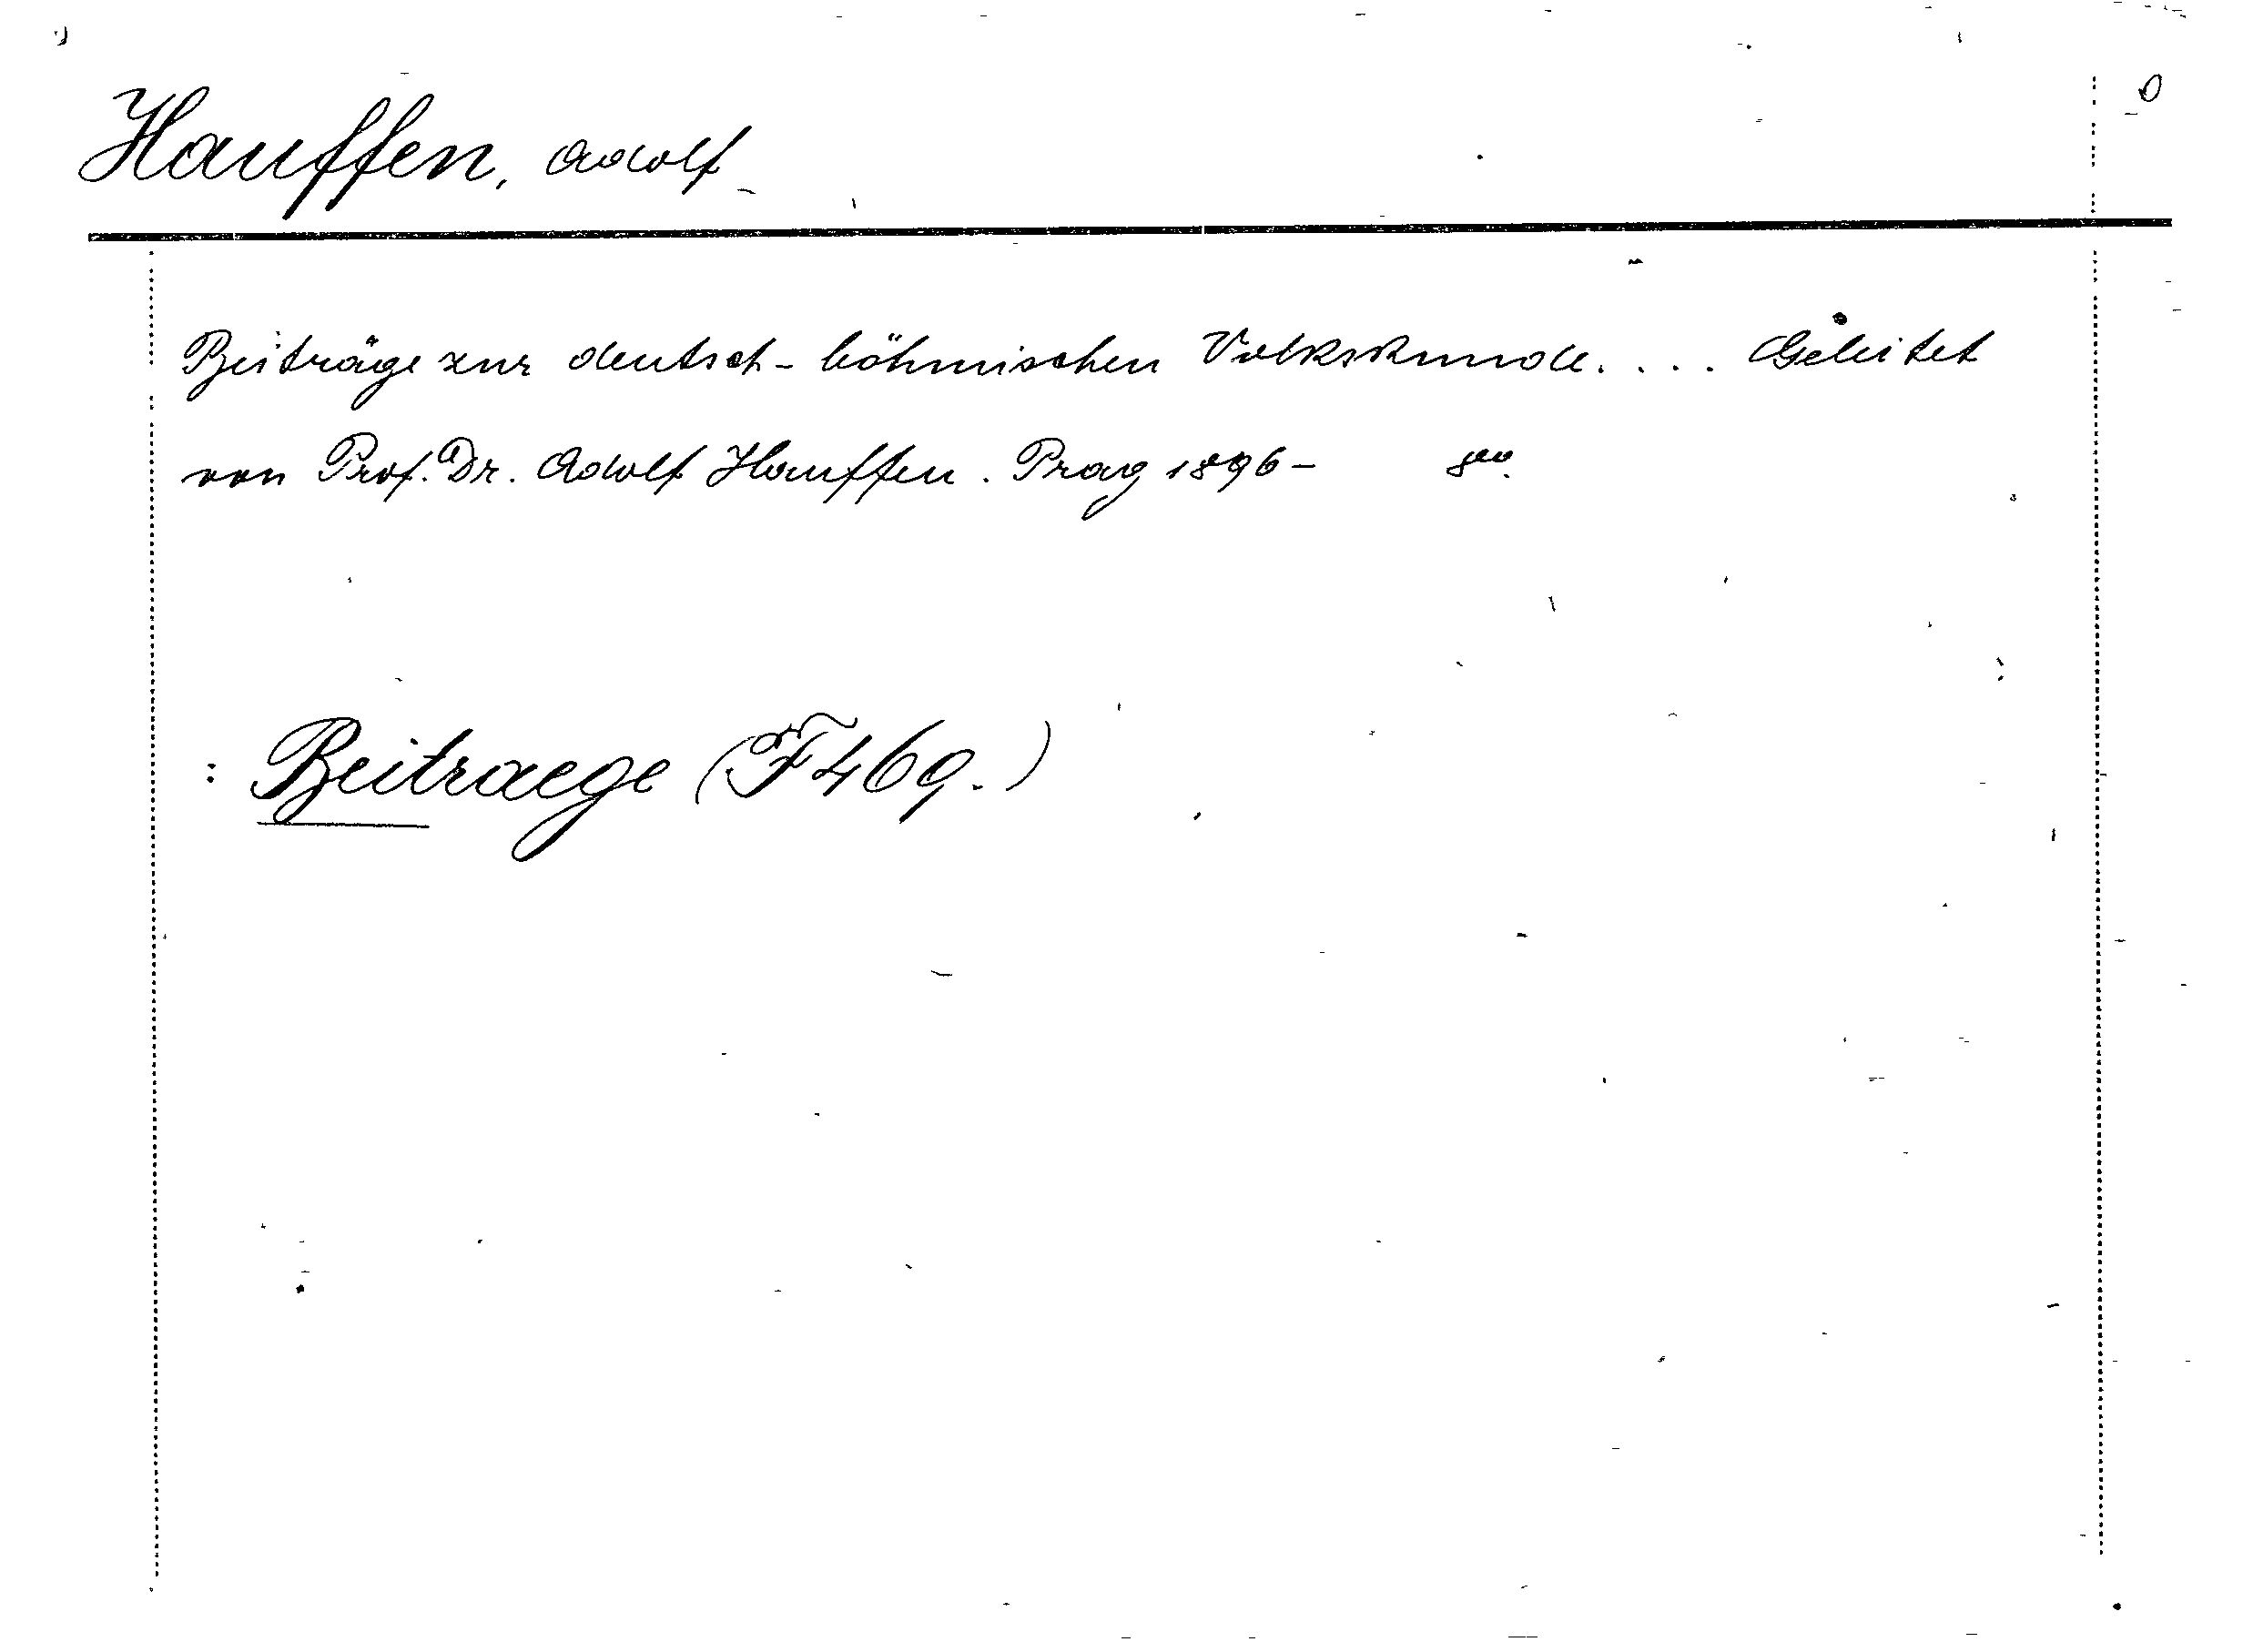 Hauffen, Adolf
Beiträge zur deutsch-böhmischen Volkskunde. . . . Geleitet
von Prof. Dr. Adolf Hauffen. Prag 1896- 8vo.
: Beitraege (F 469.)